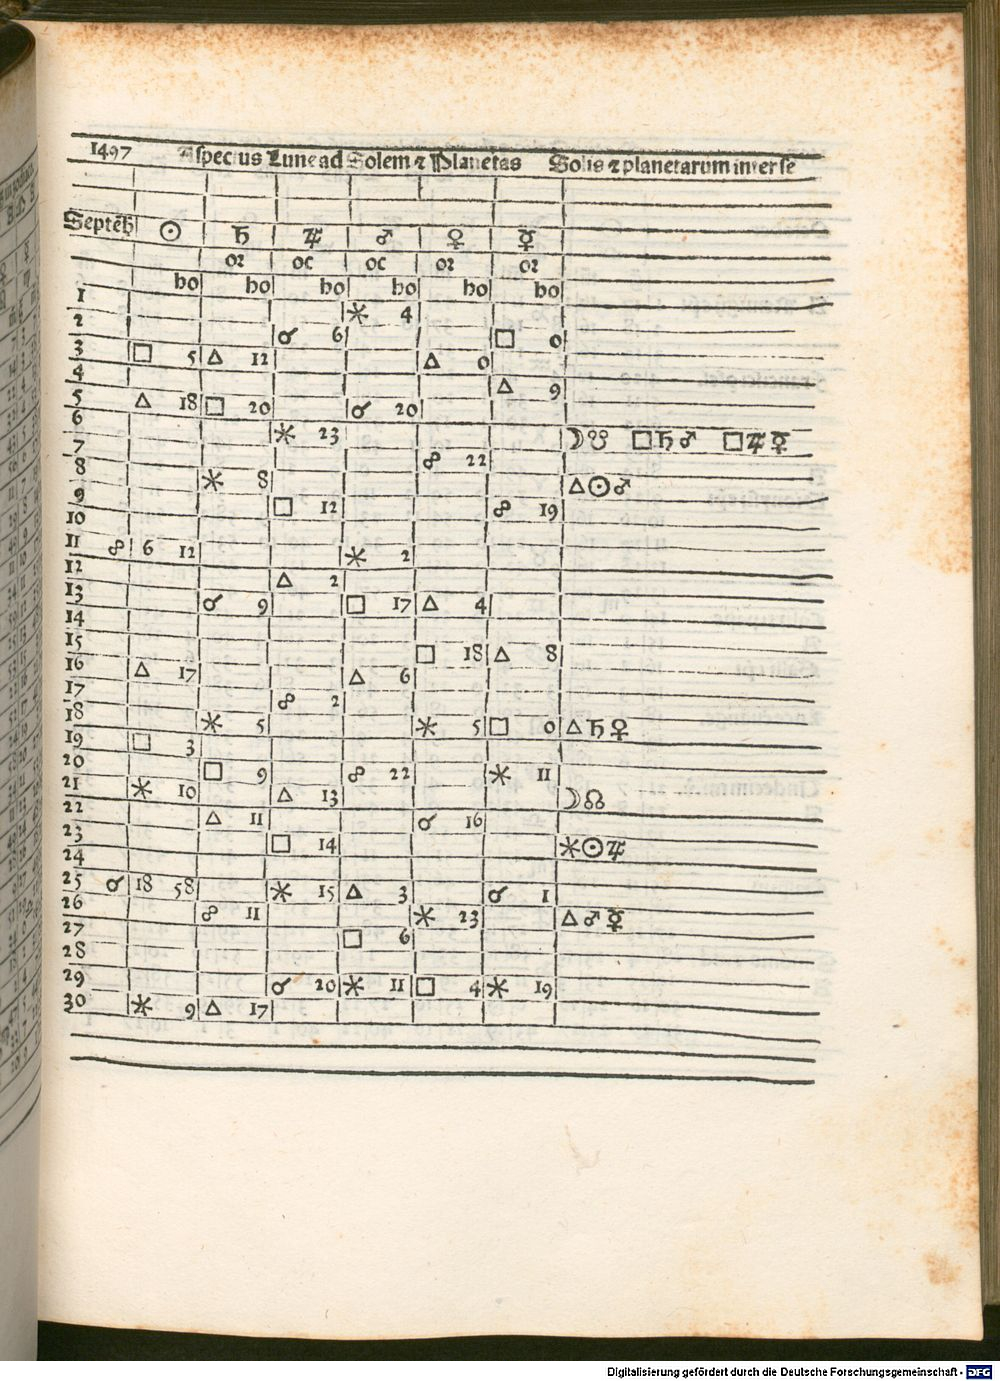 1497 Aspectus Lune ad Solem ⁊ Planetas Solis ⁊ planetarum inter se
Septēb ☉ ♄ ♃ ♂ ♀ ☿
oꝛ oc oc oꝛ oꝛ
ho ho ho ho ho ho
1 ✶ 4
2 ☌ 6 □ 0
3 □ 5 △ 12 △ 0
4 △ 9
5 △ 18 □ 20 ☌ 20
6 ✶ 23 ☽☋ □♄♂ □♃☿
7 ☍ 22
8 ✶ 8 △☉♂
9 □ 12 ☍ 19
10
11 ☍ 6 12 ✶ 2
12 △ 2
13 ☌ 9 □ 17 △ 4
14
15 □ 18 △ 8
16 △ 17 △ 6
17 ☍ 2
18 ✶ 5 ✶ 5 □ 0 △♄♀
19 □ 3
20 □ 9 ☍ 22 ✶ 11
21 ✶ 10 △ 13 ☽☊
22 △ 11 ☌ 16
23 □ 14 ✶☉♃
24
25 ☌ 18 58 ✶ 15 △ 3 ☌ 1
26 ☍ 11 ✶ 23 △♂☿
27 □ 6
28
29 ☌ 20 ✶ 11 □ 4 ✶ 19
30 ✶ 9 △ 17
Digitalisierung gefördert durch die Deutsche Forschungsgemeinschaft - DFG